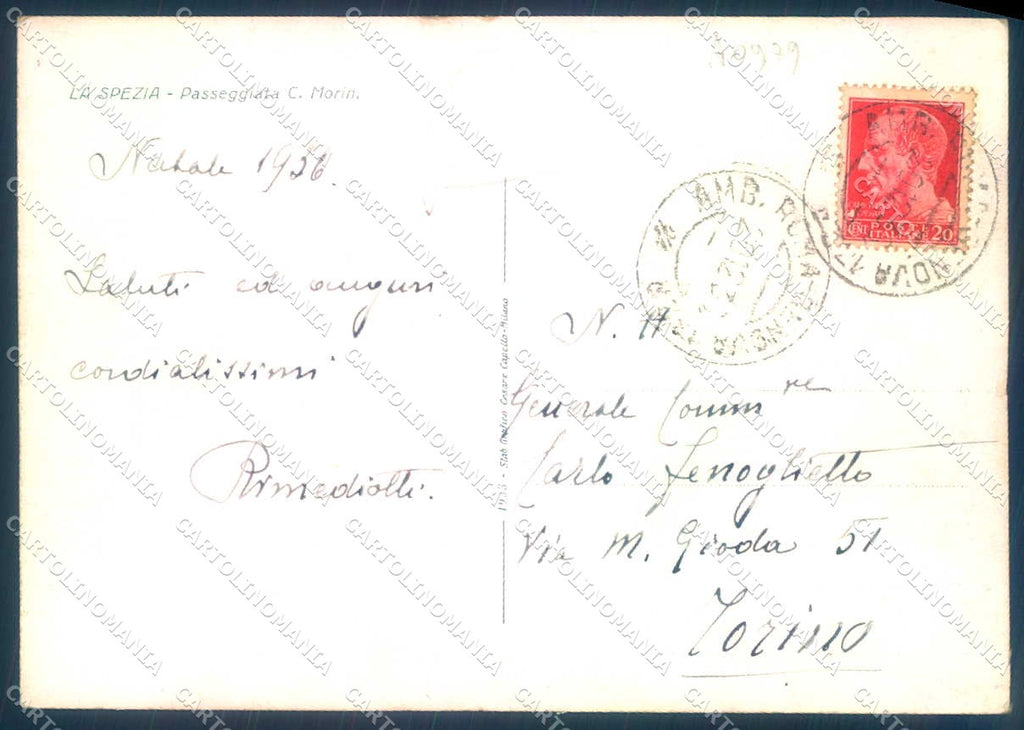 70979
LA SPEZIA - Passeggiata C. Morin.
Natale 1936.
Saluti ed auguri
cordialissimi
Rimediotti.
1933 - Stab. Grafico Cesare Capello - Milano
POSTE
CENT ITALIANE 20
AMB. ROMA-GENOVA
N. H.
Generale Comm re
Carlo Fenoglietto
Via M. Gioda 51
Torino
CARTOLINOMANIA